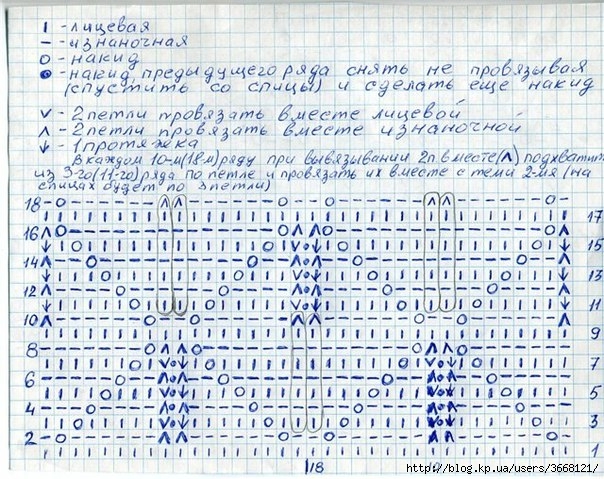 | - лицевая
— - изнаночная
o - накид
● - накид предыдущего ряда снять не провязывая
(спустить со спицы) и сделать еще накид
∨ - 2 петли провязать вместе лицевой
∧ - 2 петли провязать вместе изнаночной
↓ - 1 протяжка
В каждом 10-м(18м) ряду при вывязывании 2п вместе(∧) подхватит
из 3-го (11-го) ряда по петле и провязать их вместе с теми 2-мя (на
спицах будет по 3 петли)
18
17
16
15
14
13
12
11
10
8
7
6
5
4
3
2
1
18
http://blog.kp.ua/users/3668121/